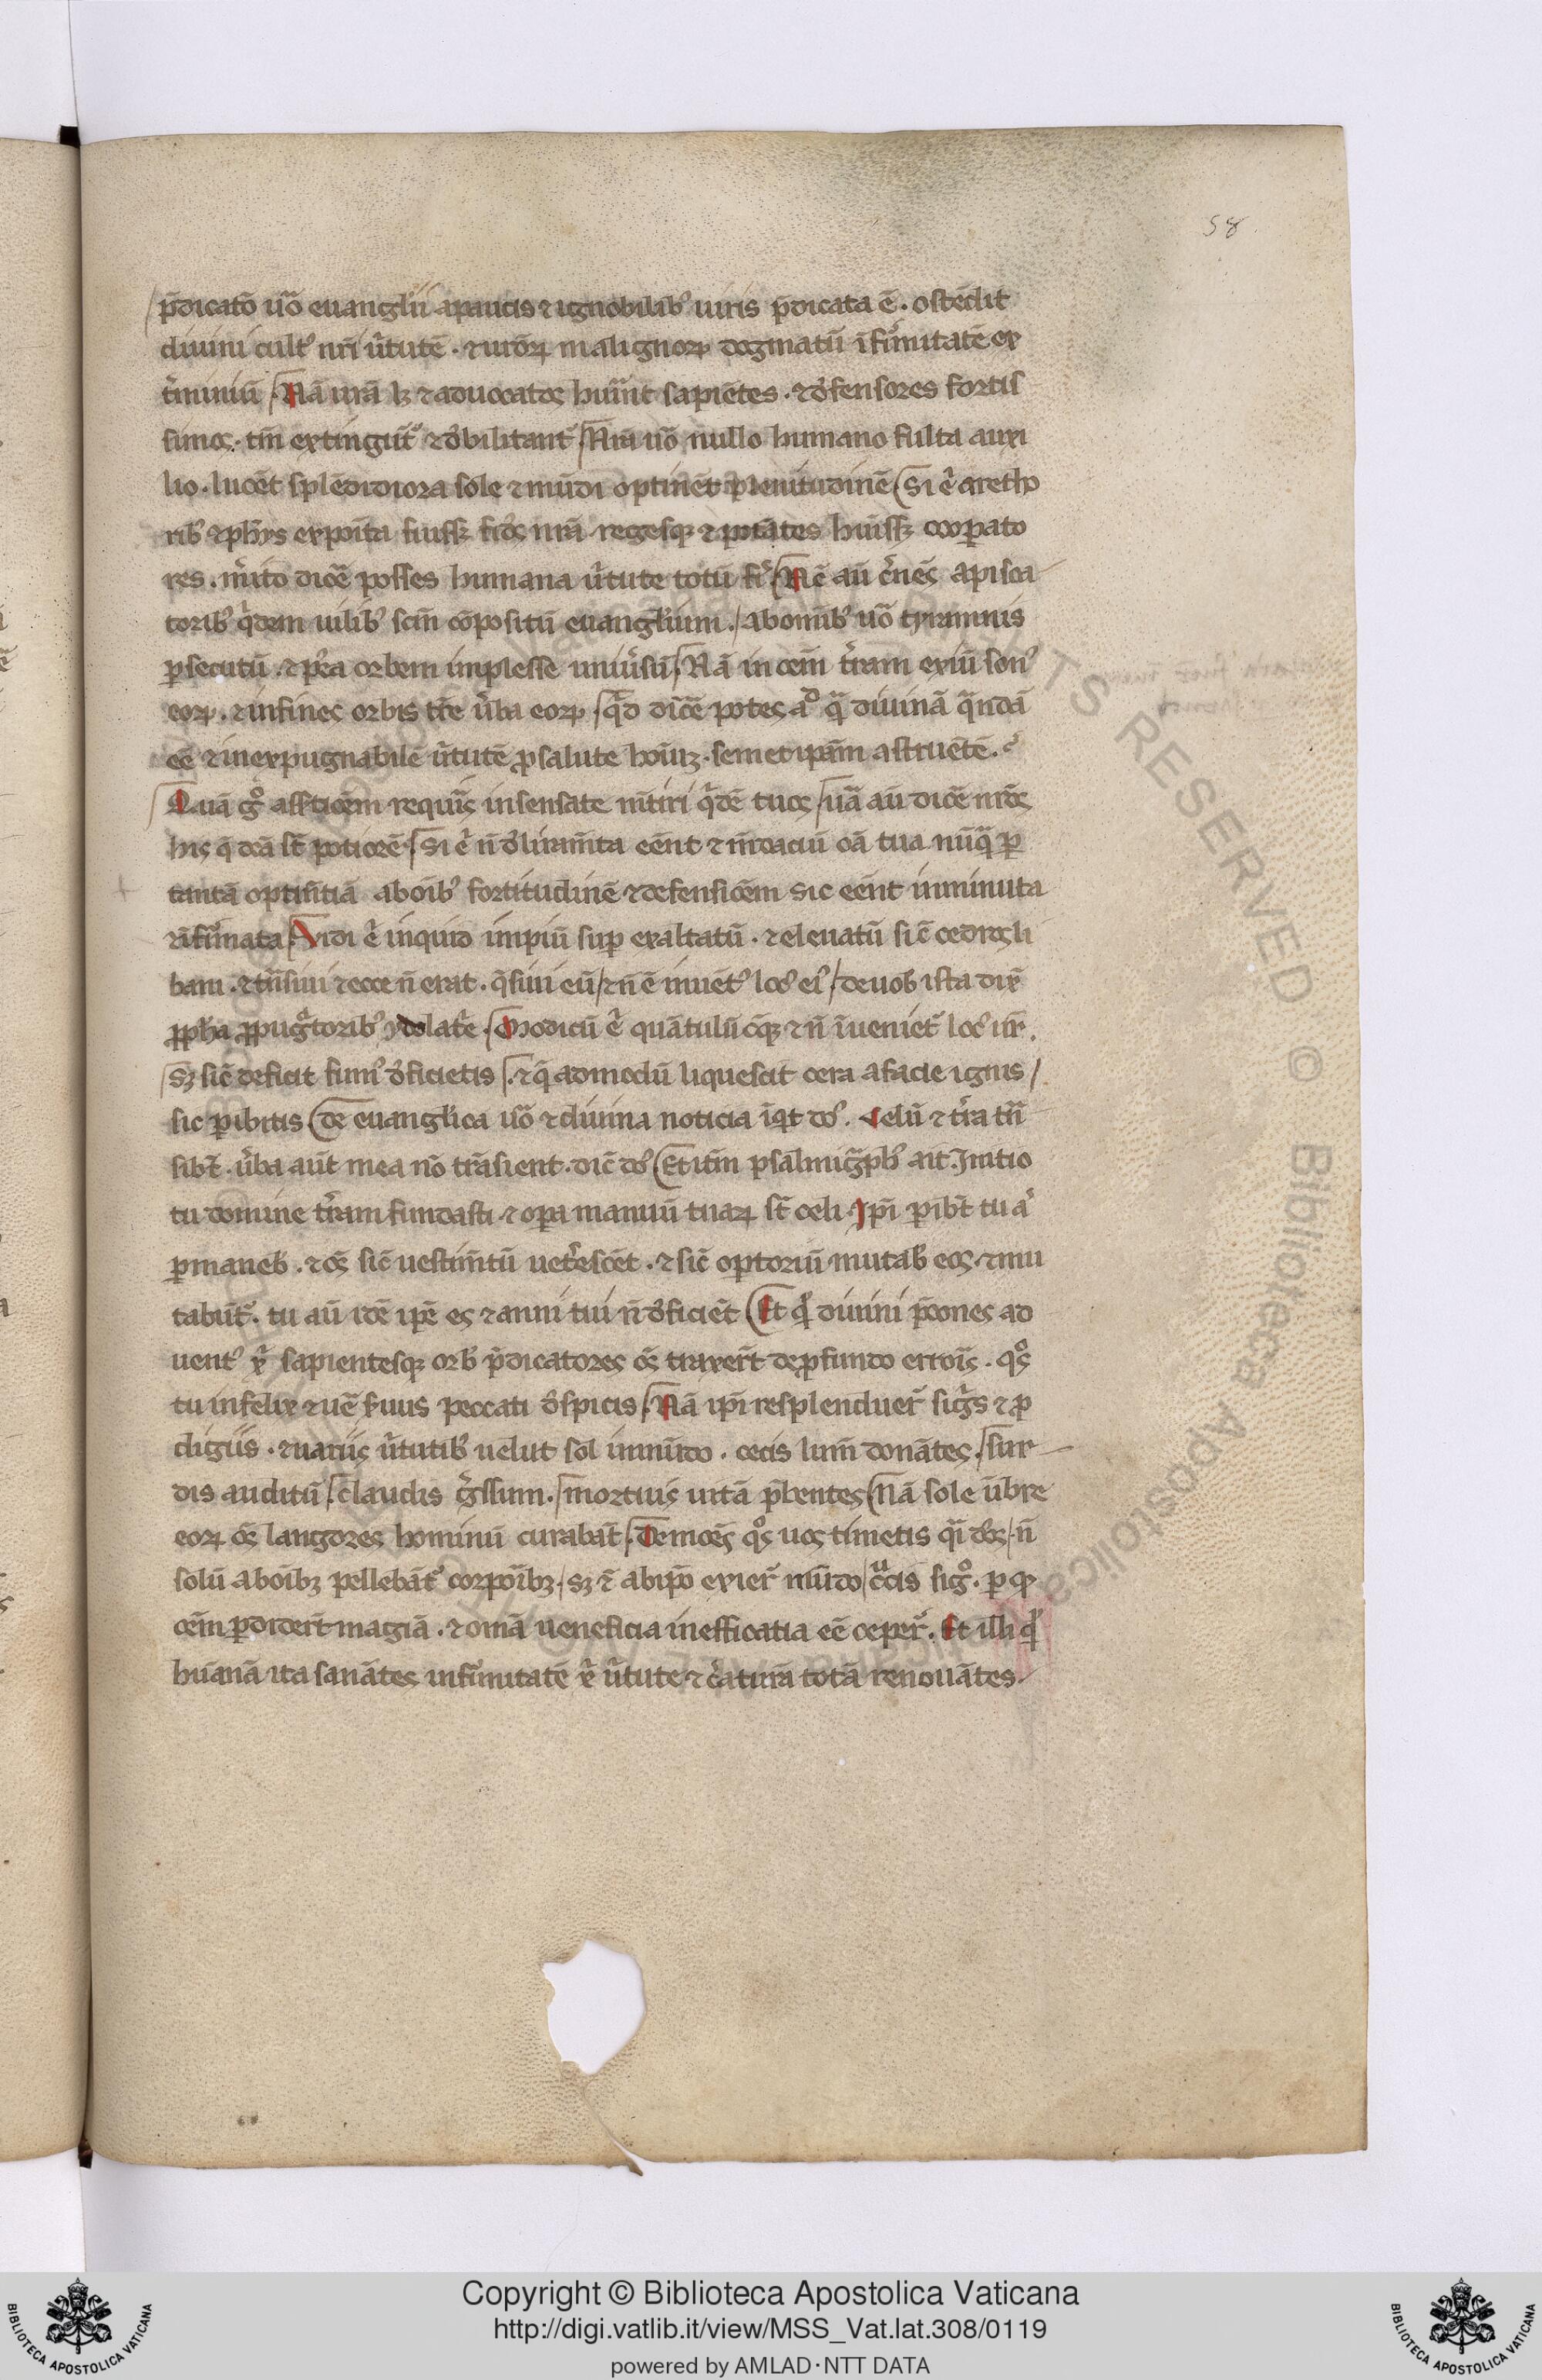 58.
p̄dicatō uō euanglii apaucis ⁊ ignobilibꝰ uiris p̄dicata ē. ostēdit
diuini cultꝰ nr̄i u̓tutē. ⁊ uroꝝ malignoꝝ dogmatū īfirmitatē ex
Nā ur̄a lꝫ ⁊ aduocatos sapiētes. ⁊ defensores fortis
simos. tn̄ extinguūt᷑ ⁊ debilitant᷑ Nr̄a uō nullo humano fulta auxi
lio. lucēt splēdidiora sole ⁊ mūdi optinēt plenitudinē Si e̓ a retho
ribꝰ ⁊ ph̄ys expoīta fuissꝫ fides nr̄a regesqꝫ ⁊ potātes habuissꝫ coopato
res. m̓ito dice᷑ posses humana u̓tute totū Nc̄ aū c̓nēs apisca
toribꝰ q̓dam uilibꝰ scm̄ cōpositū euanglium. abomībꝰ uō tyrannis
ꝑsecutū. ⁊ pꝰea orbem implesse uniu̓sū Nā in oēm t̓ram exiū sonꝰ
eoꝝ. ⁊ infines orbis tr̄e u̓ba eoꝝ qͥd dice᷑ potes aᵈ qᵃ diuinā qᵃndā
eē ⁊ inexpugnabilē u̓tutē ꝓ salute hoīuꝫ. semetipsam astruētē.
Quā gͦ requiris insensate mn̄tiri q̓dē tuos
his q̄ dcā sūt potiorē. Si e̓ n̄ deliramn̄ta eēnt ⁊ mn̄daciū oīa tua nūqᵃ ꝑ
tantā optin̄tiā aboībꝰ fortitudinē ⁊ defensionem sic eēnt inminuta
⁊ īfirmata Vidi e̓ inquid impiū suꝑ exaltatū. ⁊ eleuatū sic̄ cedros li
bani. ⁊ tn̄siui ⁊ ecce n̄ erat. q̄siui eū ⁊ n̄ ē inuētꝰ locꝰ eiꝰ de uob ista dix̄
ꝓph̄a ꝓpugᵃtoribꝰ ydolatr̄e. Modicū e̓ quātulūcūqꝫ ⁊ n̄ īueniet᷑ locꝰ ur̄.
Sꝫ sic̄ deficit fumꝰ deficietis. ⁊ q̄admodū liquescit cera a facie ignis
sic peribitis De euanglica uō ⁊ diuina noticia īqͥt do᷒. Celū ⁊ t̓ra tn̄
sibt̄. u̓ba aut̄ mea nō trāsient. dic̄ do᷒ Et itm̄ psalmigᵃphꝰ ait. Initio
tu domine t̓ram fundasti ⁊ opa manuū tuaꝝ sūt celi. Ipī peribt̄ tu aͥ
ꝑmaneb̄. ⁊ oēs sic̄ uestimn̄tū uet̓escēt. ⁊ sic̄ optoriū mutab̄ eos. ⁊ mu
tabūt᷑. tu aū idē ipē es ⁊ anni tui n̄ deficiēt Et qͥ diuini p̄cones ad
uentꝰ xͥ sapientesqꝫ orb̄ p̄dicatores oēs traxer̄t deꝓfundo errois. qͦs
tu infelix ⁊ uē s̄uus peccati despicis. Nā ipī resplenduer̄ sigͥs ⁊ ꝓ
digiis. ⁊ uariis u̓tutibꝰ uelut sol inmūdo. cecis lum̄ donātes. sur
dis auditū. claudis gͣssum. mortuis uitā p̄bentes Nā sole ūbre
eoꝝ oēs langores hominū curabāt. Demoēs qͦs uos timetis qͥ deos n̄
solū aboībꝫ pellebāt᷑ corpoībꝫ. sꝫ ⁊ abipō exier̄ mūdo cͨcis sigͦ. ꝑ qꝫ
oēm ꝑdider̄t magiā. ⁊ omā ueneficia inefficatia eē ceper̄. Et illi qͥ
hūanā ita sanātes infirmitatē xͥ u̓tute ⁊ c̓aturā totā renouātes.
Copyright © Biblioteca Apostolica Vaticana
http://digi.vatlib.it/view/MSS_Vat.lat.308/0119
powered by AMLAD · NTT DATA
BIBLIOTECA APOSTOLICA VATICANA
BIBLIOTECA APOSTOLICA VATICANA